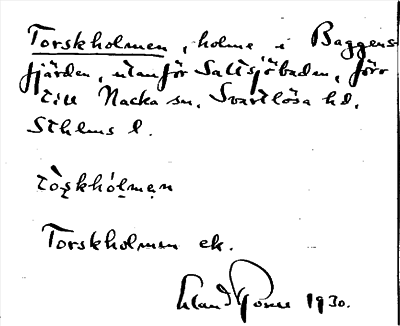 Torskholmen, holme i Baggens-
fjärden, utanför Saltsjöbaden, förr
till Nacka sn. Svartlösa hd,
Sthlms l.
tòs̨khól̥men̥
Torskholmen ek.
1930.